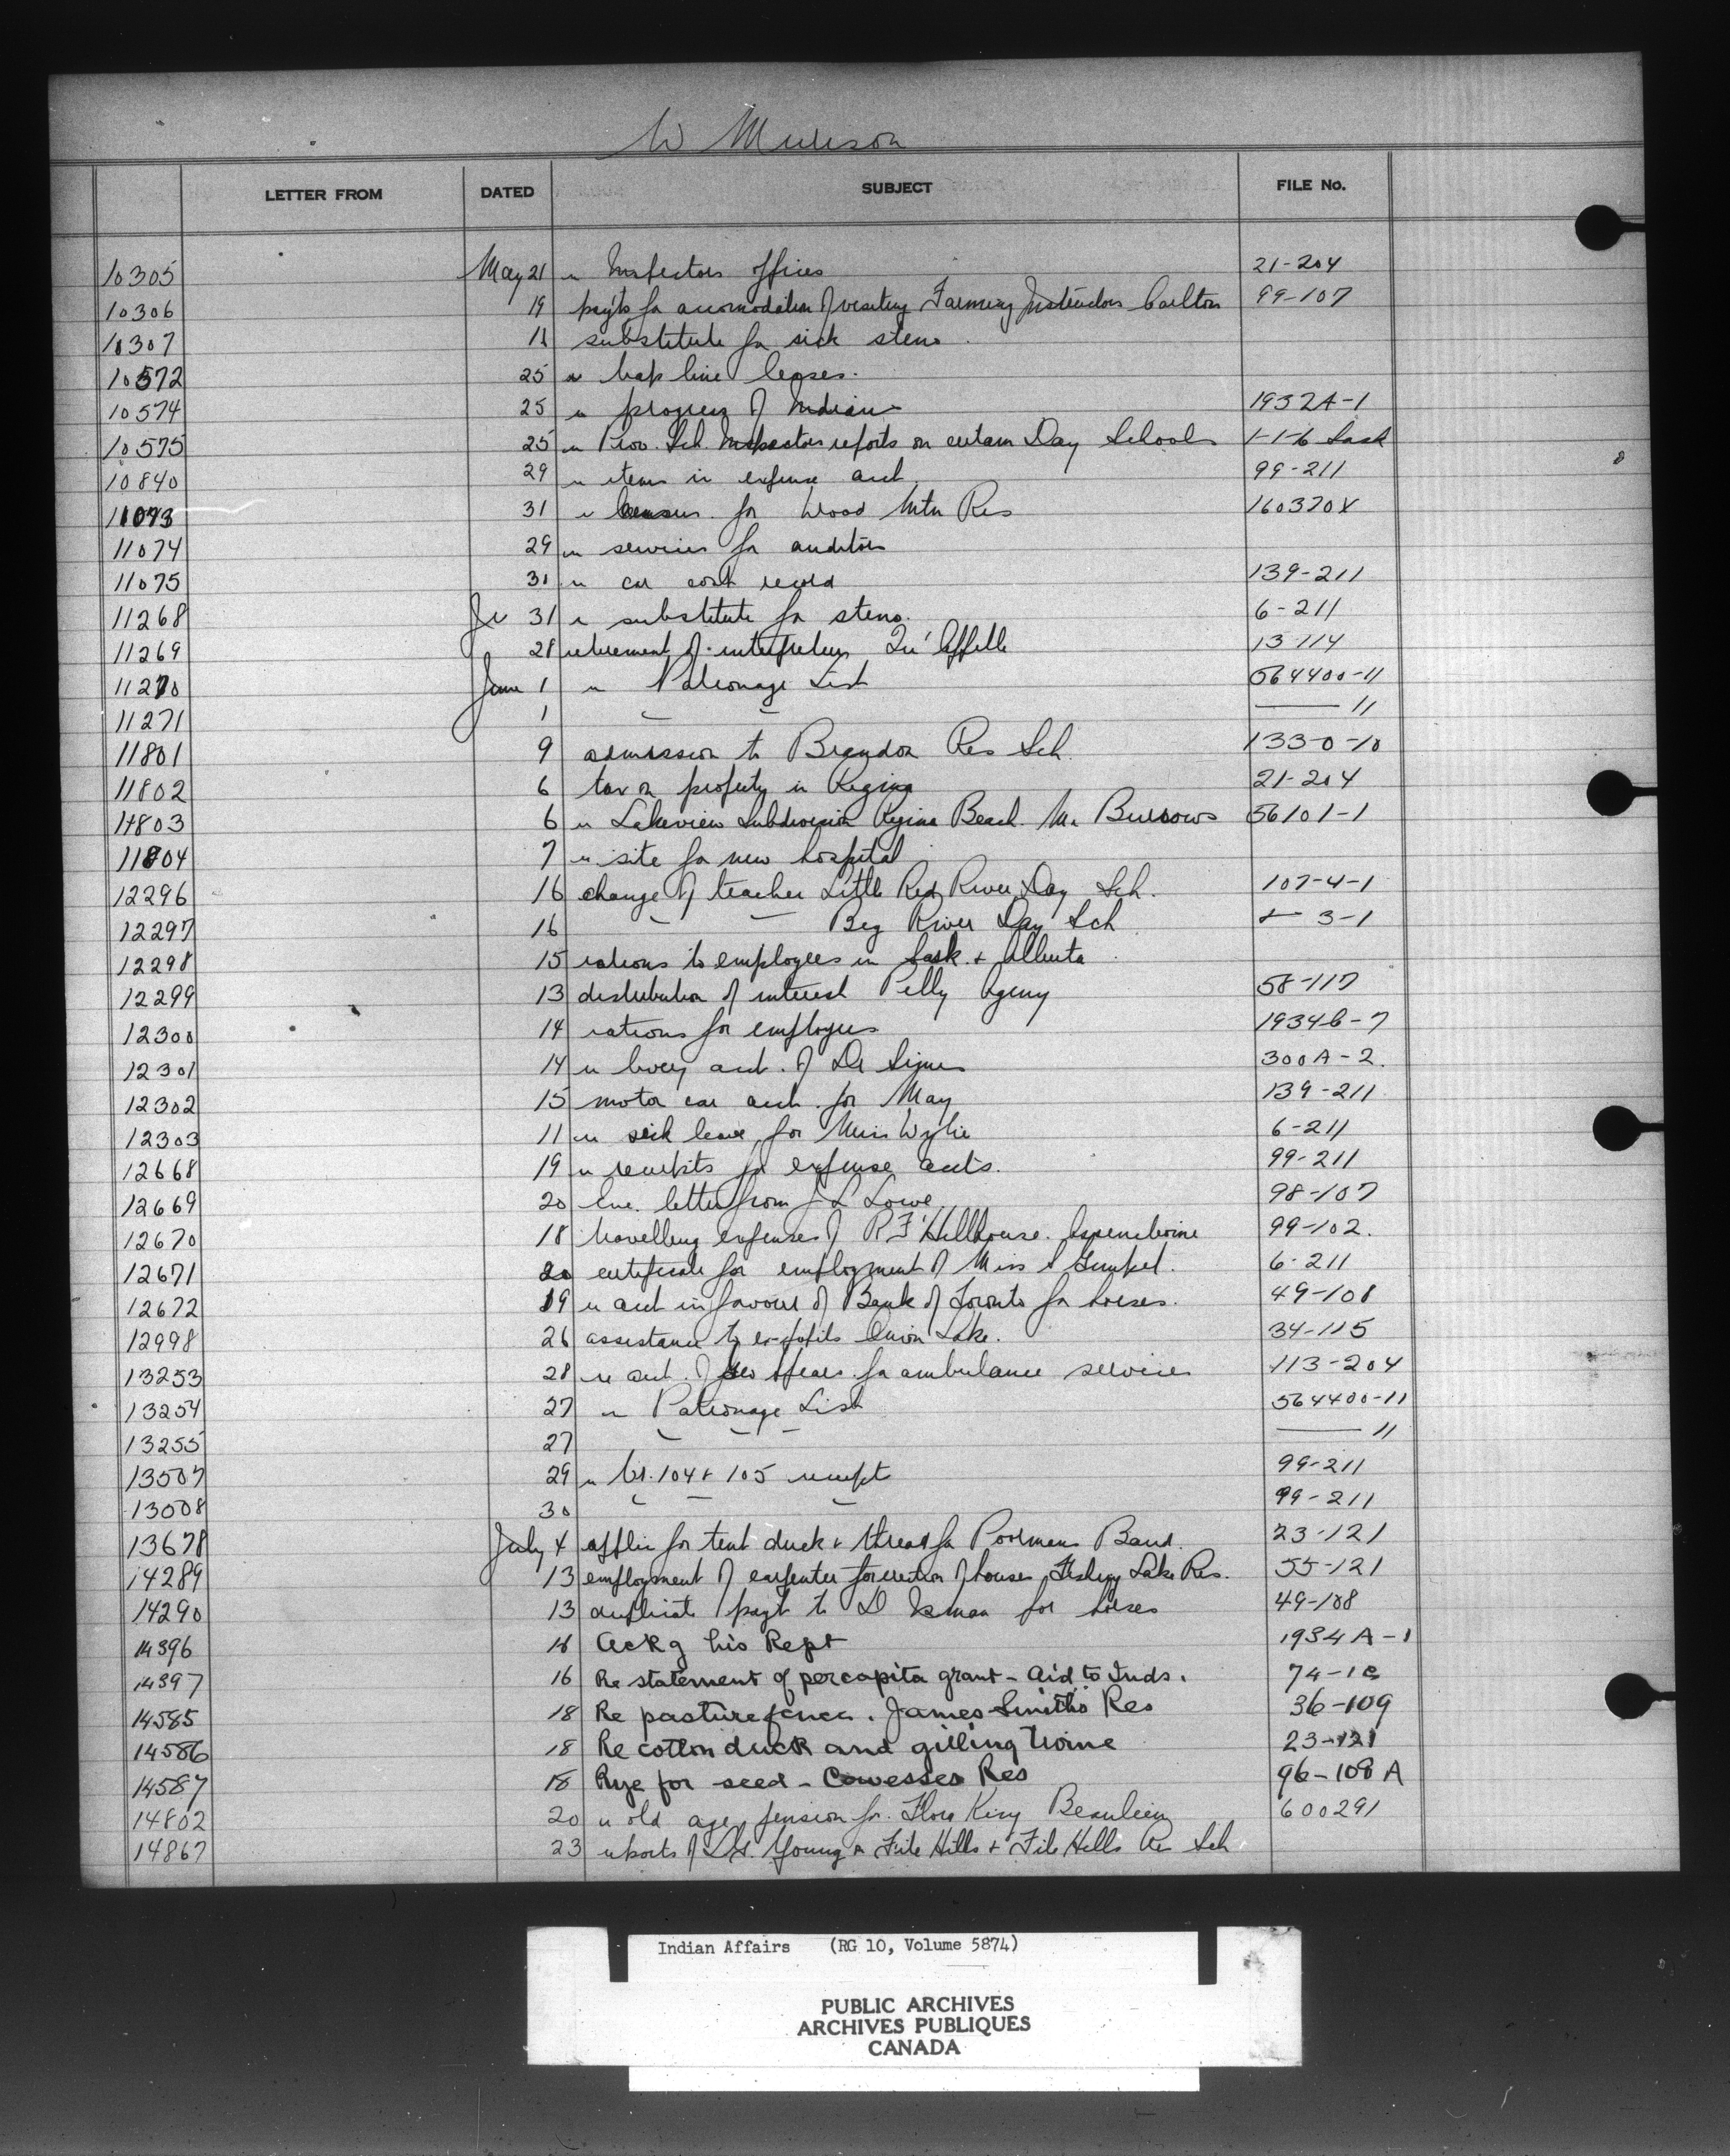 W Murison
LETTER FROM DATED SUBJECT FILE No.
10305 May 21 re Inspectors offices 21-204
10306 19 payts for accomodation of visiting Farming Instructors Carlton 99-107
10307 18 substitute for sick steno.
10572 25 re trap line leases.
10574 25 re progress of Indians 1932A-1
10575 25 re Prov. Sch. Inspectors reports on certain Day Schools 1-1-6 Sask
10840 29 re items in expense acct 99-211
11073 31 re census for Wood Mtn Res 160370X
11074 29 re services for auditors
11075 31 re car cost record 139-211
11268 31 re substitute for steno. 6-211
11269 28 retirement of interpreter Qu'Appelle 13-114
11270 June 1 re Patronage List 564400-11
11271 1 " " —— 11
11801 9 admission to Brandon Res Sch. 133-0-10
11802 6 tax on property in Regina 21-204
11803 6 re Lakeview Subdivision Regina Beach. Mr Burrows 56101-1
11804 7 re site for new hospital
12296 16 change of teacher Little Red River Day Sch. 107-4-1
12297 16 " " Big River Day Sch " 3-1
12298 15 rations to employees in Sask. & Alberta
12299 13 distribution of interest Pelly Agency 58-117
12300 14 rations for employees 1934B-7
12301 14 re livery acct. of Dr Simes 300A-2.
12302 15 motor car acct. for May 139-211
12303 11 re sick leave for Miss Wylie 6-211
12668 19 re receipts for expense accts. 99-211
12669 20 Enc. letter from J L Lowe 98-107
12670 18 travelling expenses of R F Hillhouse. Assiniboine 99-102.
12671 20 certificate for employment of Miss S Gunkel. 6-211
12672 19 re acct in favour of Bank of Toronto for horses. 49-108
12998 26 assistance to ex-pupils Onion Lake. 34-115
13253 28 re acct. of Geo Spears for ambulance services 113-204
13254 27 re Patronage List 564400-11
13255 27 " " " —— 11
13507 29 re Cr. 104 & 105 receipt 99-211
13508 30 " " " 99-211
13678 July 4 applic for tent duck & thread for Poormans Band. 23-121
14289 13 employment of carpenter for erection of houses, Fishing Lake Res. 55-121
14290 13 duplicate payt to D Isman for horses 49-108
14396 16 Ackg his Rept 1934A-1
14397 16 Re statement of percapita grant - Aid to Inds. 74-1
14585 18 Re pasture fence. James Smith's Res 36-109
14586 18 Re cotton duck and gilling twine 23-121
14587 18 Rye for seed - Cowesses Res 96-108A
14802 20 re old age pension for. Flora King Beaulieu 600291
14867 23 reports of Dr. Young re File Hills & File Hills Res Sch
Indian Affairs (RG 10, Volume 5874)
PUBLIC ARCHIVES
ARCHIVES PUBLIQUES
CANADA